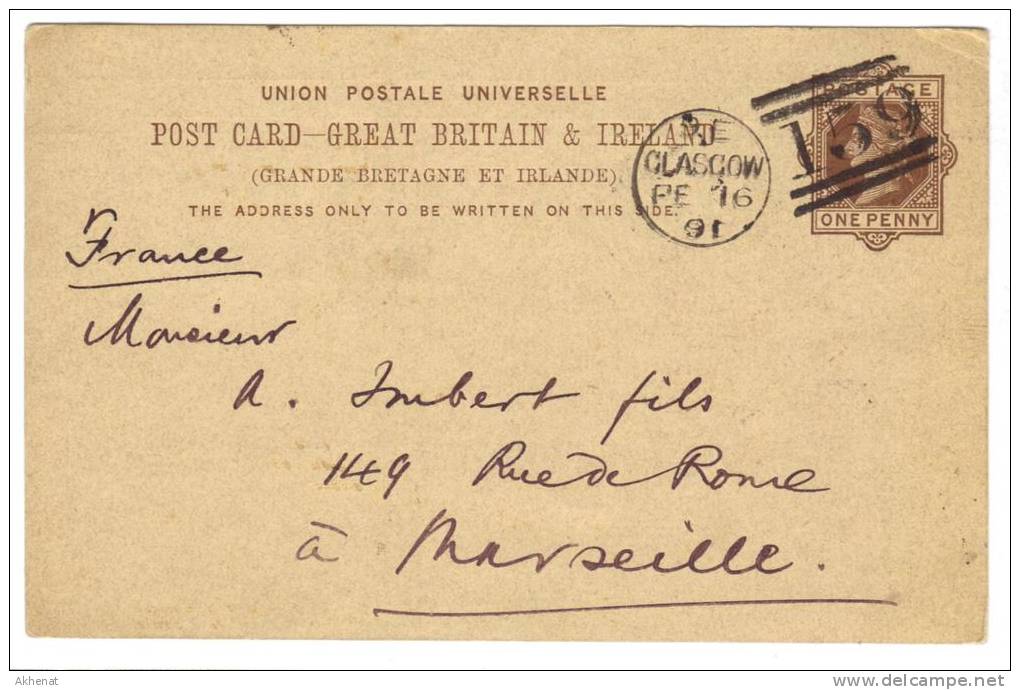 UNION POSTALE UNIVERSELLE
POST CARD—GREAT BRITAIN & IRELAND
(GRANDE BRETAGNE ET IRLANDE)
THE ADDRESS ONLY TO BE WRITTEN ON THIS SIDE.
GLASGOW
FE 16
91
159
POSTAGE
ONE PENNY
France
Monsieur
A. Imbert fils
149 Rue de Rome
à Marseille.
Akhenat
delcampe.net